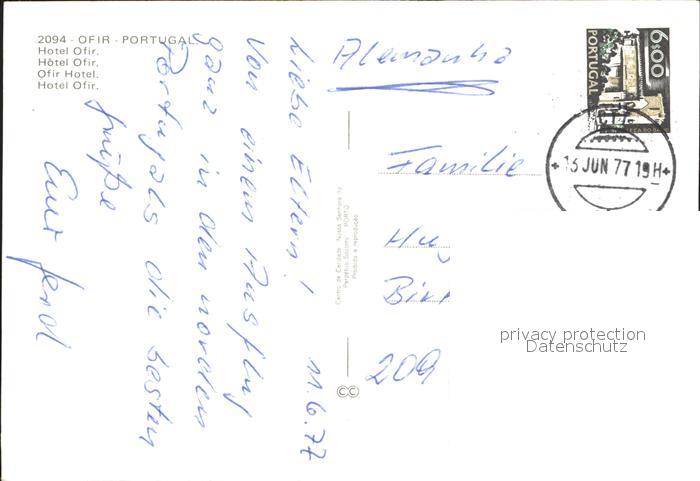 2094 - OFIR - PORTUGAL
Hotel Ofir.
Hôtel Ofir.
Ofir Hotel.
Hotel Ofir.
11.6.77
Liebe Eltern!
Von einem Ausflug
ganz in den norden
Portugals die besten
Grüße
Euer Ferdl
Centro de Caridade "Nossa Senhora do
Perpétuo Socorro" PORTO
Proibida a reprodução
Alemanha
Familie
209
PORTUGAL
6$00
13 JUN 77 19H
privacy protection
Datenschutz